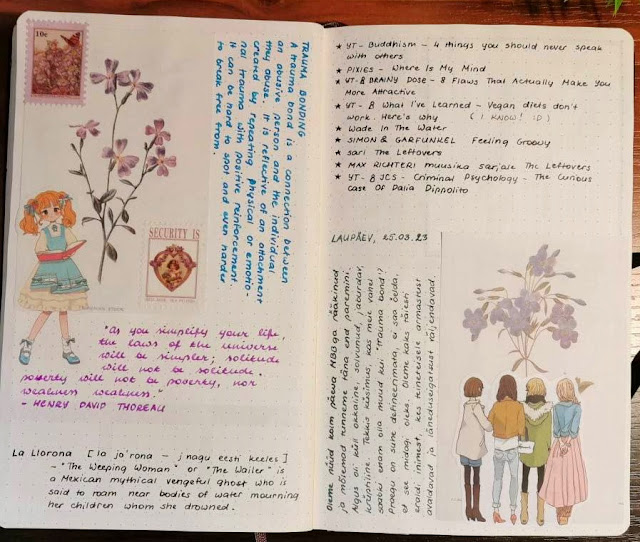 10c
TRAUMA BONDING
A trauma bond is a connection between
an abusive person and the individual
they abuse. It is reflective of an attachment
created by repeating physical or emotio-
nal trauma with positive reinforcement.
It can be hard to spot and even harder
to break free from.
SECURITY IS
"As you simplify your life,
the laws of the universe
will be simpler; solitude
will not be solitude.
poverty will not be poverty, nor
weakness weakness."
- HENRY DAVID THOREAU
La Llorona [la jo'rona - j nagu eesti keeles]
- "The Weeping Woman" or "The Wailer" is
a Mexican mythical vengeful ghost who is
said to roam near bodies of water mourning
her children whom she drowned.
★ YT - Buddhism - 4 things you should never speak
with others
★ PIXIES - Where Is My Mind
★ YT - BRAINY DOSE - 8 Flaws That Actually Make You
More Attractive
★ YT - What I've Learned - Vegan diets don't
work. Here's why ( I KNOW! :D )
★ Wade In The Water
★ SIMON & GARFUNKEL Feeling Groovy
★ sari The Leftovers
★ MAX RICHTERI muusika sarjale The Leftovers
★ YT - JCS - Criminal Psychology - The Curious
Case Of Dalia Dippolito
LAUPÄEV, 25.03.23
Oleme nüüd kolm päeva MBBga rääkinud
ja mõlemad tunneme täna end paremini.
Algus oli küll okkaline, solvunud, jaburdav,
krüptiline. Tekkis küsimus, kas meie vahel
enam olla muud kui trauma bond!?
Praegu on suhe defineerimata, ei saa öelda,
et see midagi oleks. Oleme kaks
inimest, kes teineteisele armastust
avaldavad ja väljendavad.